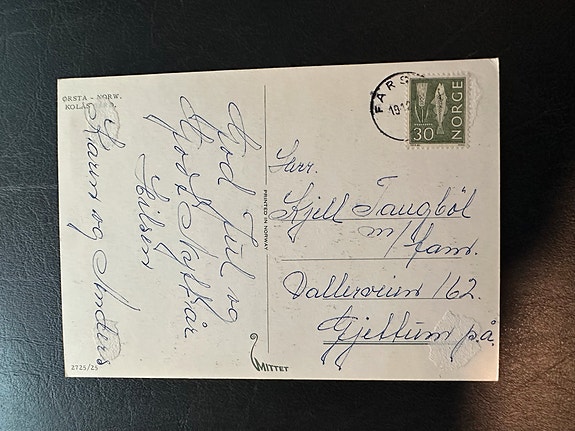 ØRSTA - NORW.
KOLÅS
God Jul og
Godt Nyttår
Hilsen
Karin og Anders
2725/25
PRINTED IN NORWAY
MITTET
FARS
19.12
30
NORGE
Herr.
Kjell Taugbøl
m/fam.
Vallerveien 162.
Gjettum p.å.